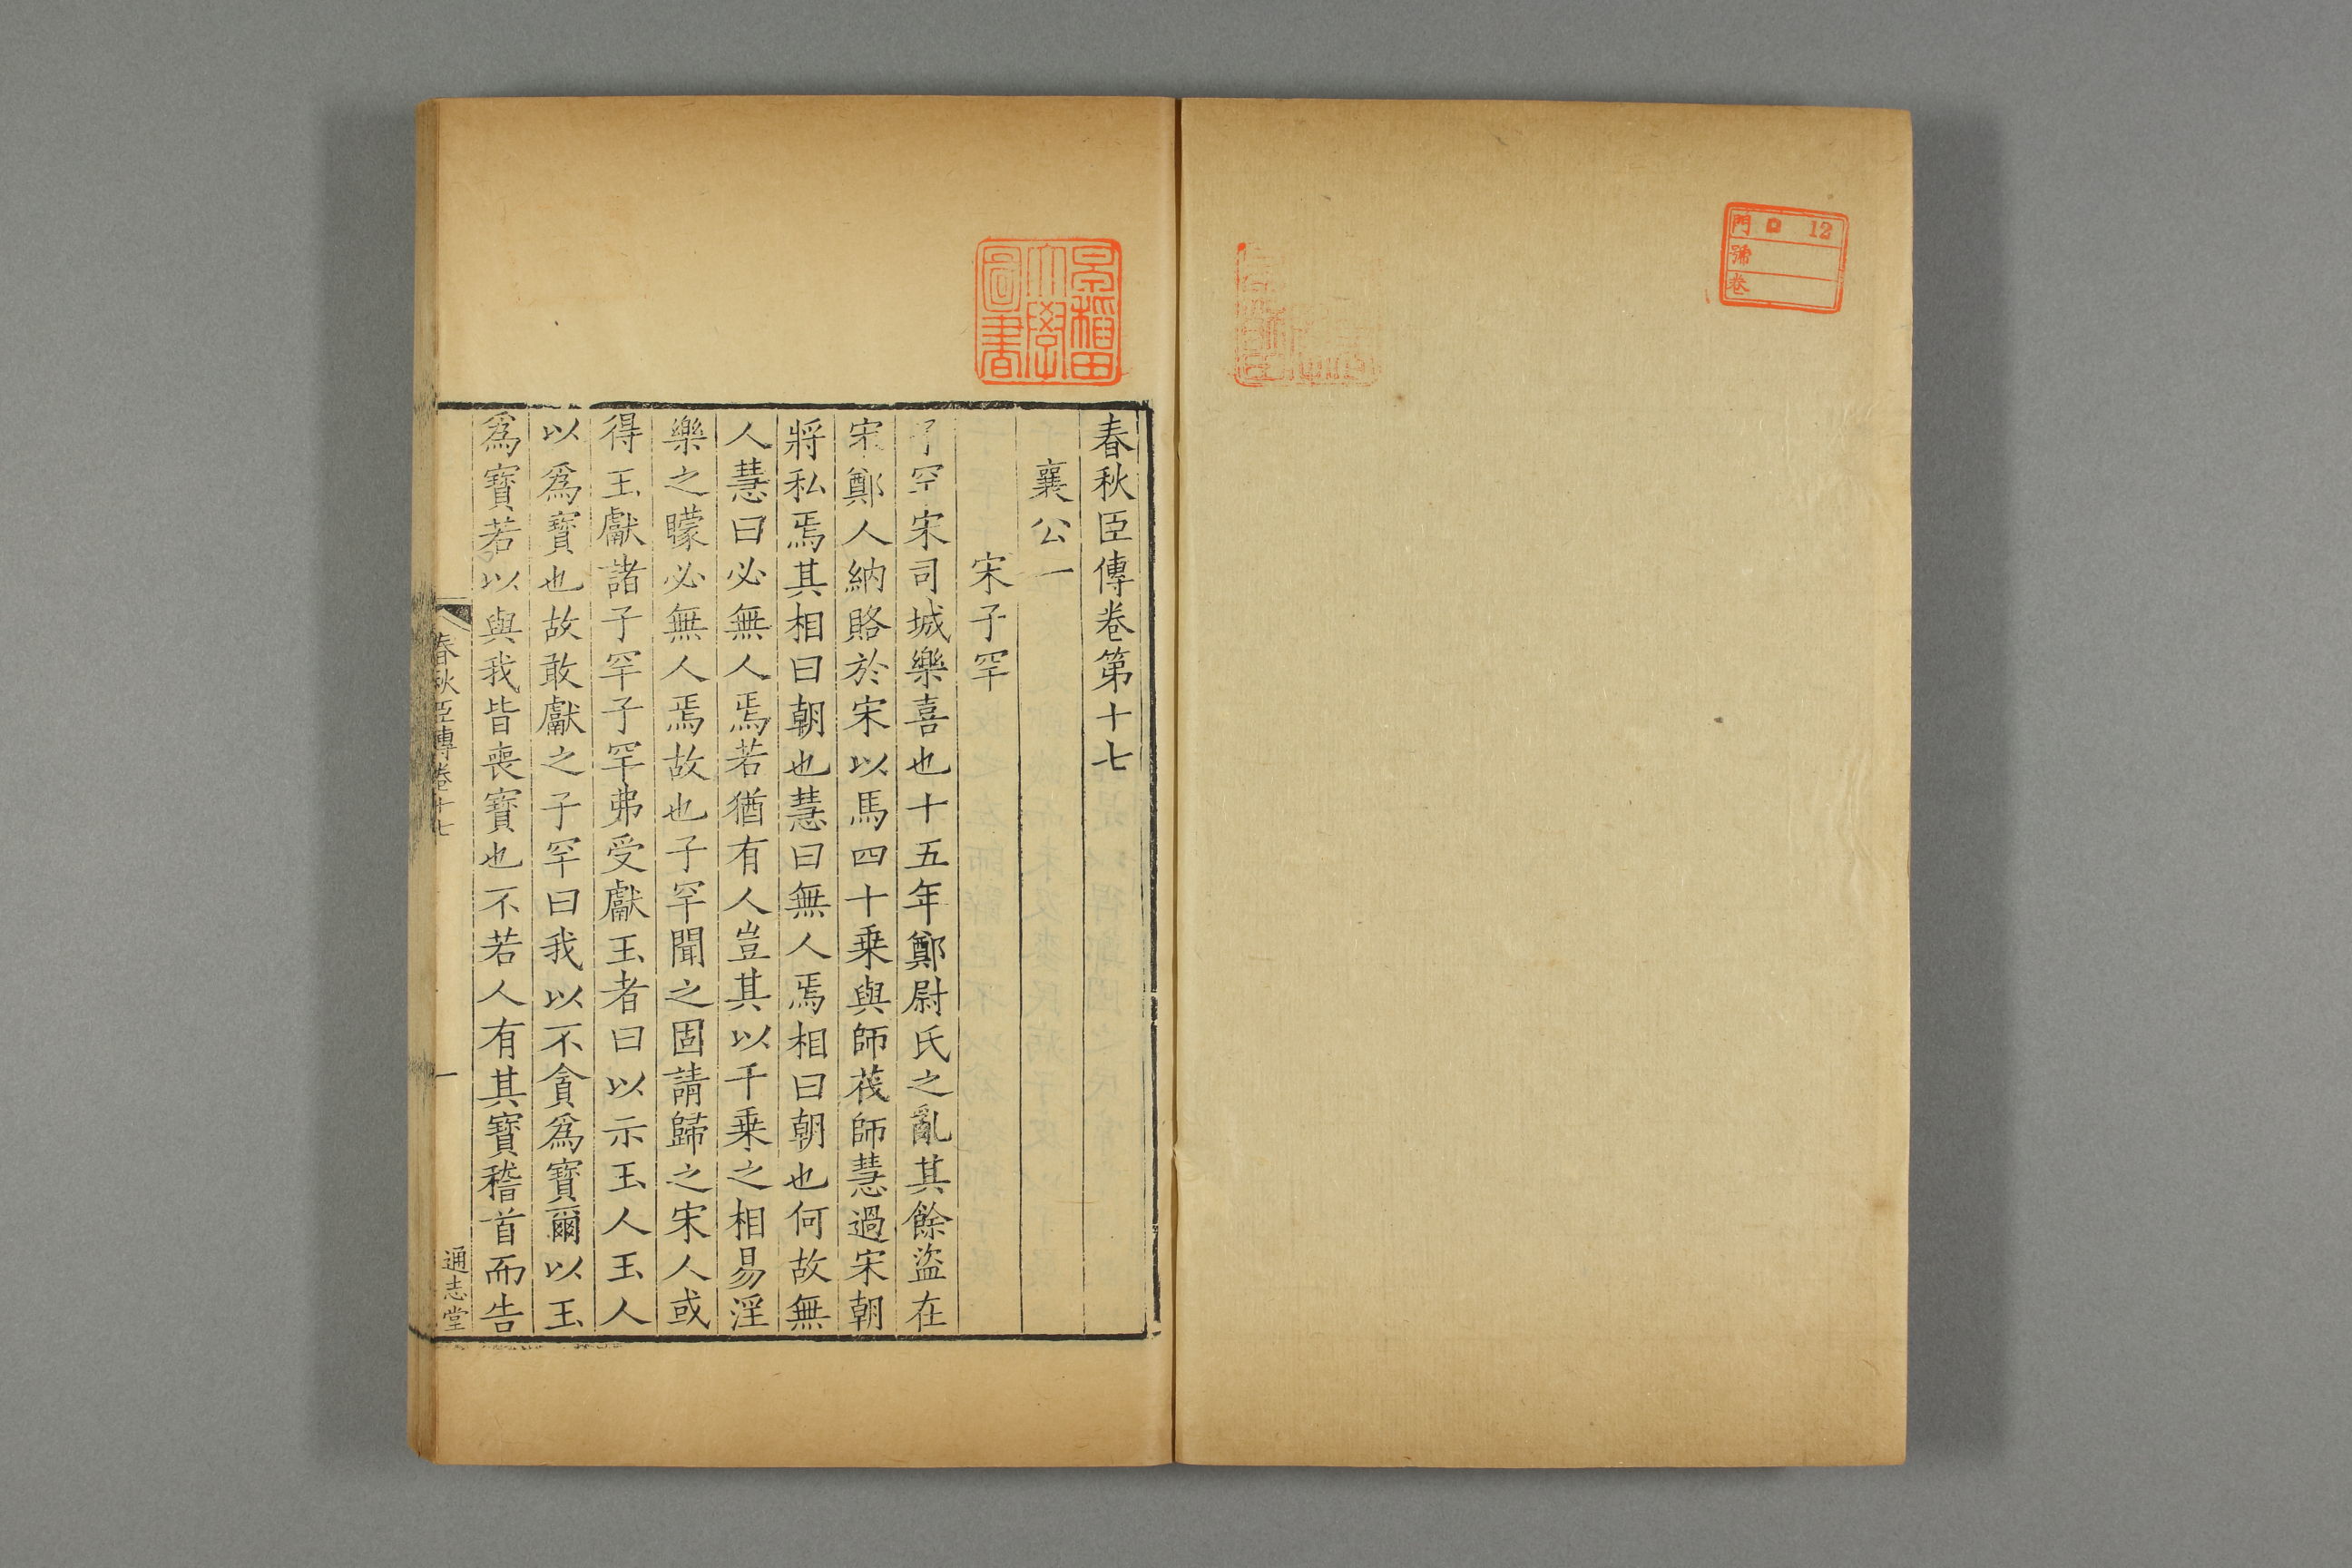 門 12
號
卷
早稲田
大學
圖書
春秋臣傳卷第十七
襄公一
宋子罕
子罕宋司城樂喜也十五年鄭尉氏之亂其餘盜在
宋鄭人納賂於宋以馬四十乗與師茷師慧過宋朝
將私焉其相曰朝也慧曰無人焉相曰朝也何故無
人慧曰必無人焉若猶有人豈其以千乗之相易淫
樂之矇必無人焉故也子罕聞之固請歸之宋人或
得玉獻諸子罕子罕弗受獻玉者曰以示玉人玉人
以爲寶也故敢獻之子罕曰我以不貪爲寶爾以玉
爲寶若以與我皆喪寶也不若人有其寶稽首而告
春秋臣傳卷十七 一 通志堂